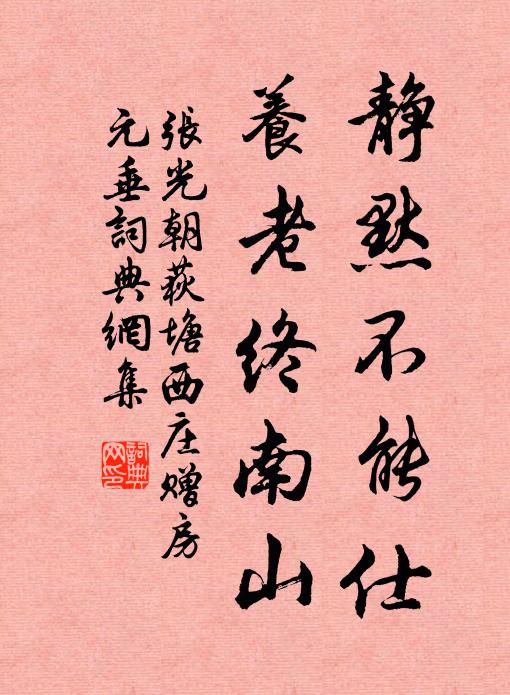 靜默不能仕
養老終南山
張光朝荻塘西庄贈房
元垂詞典網集
詞典
网印